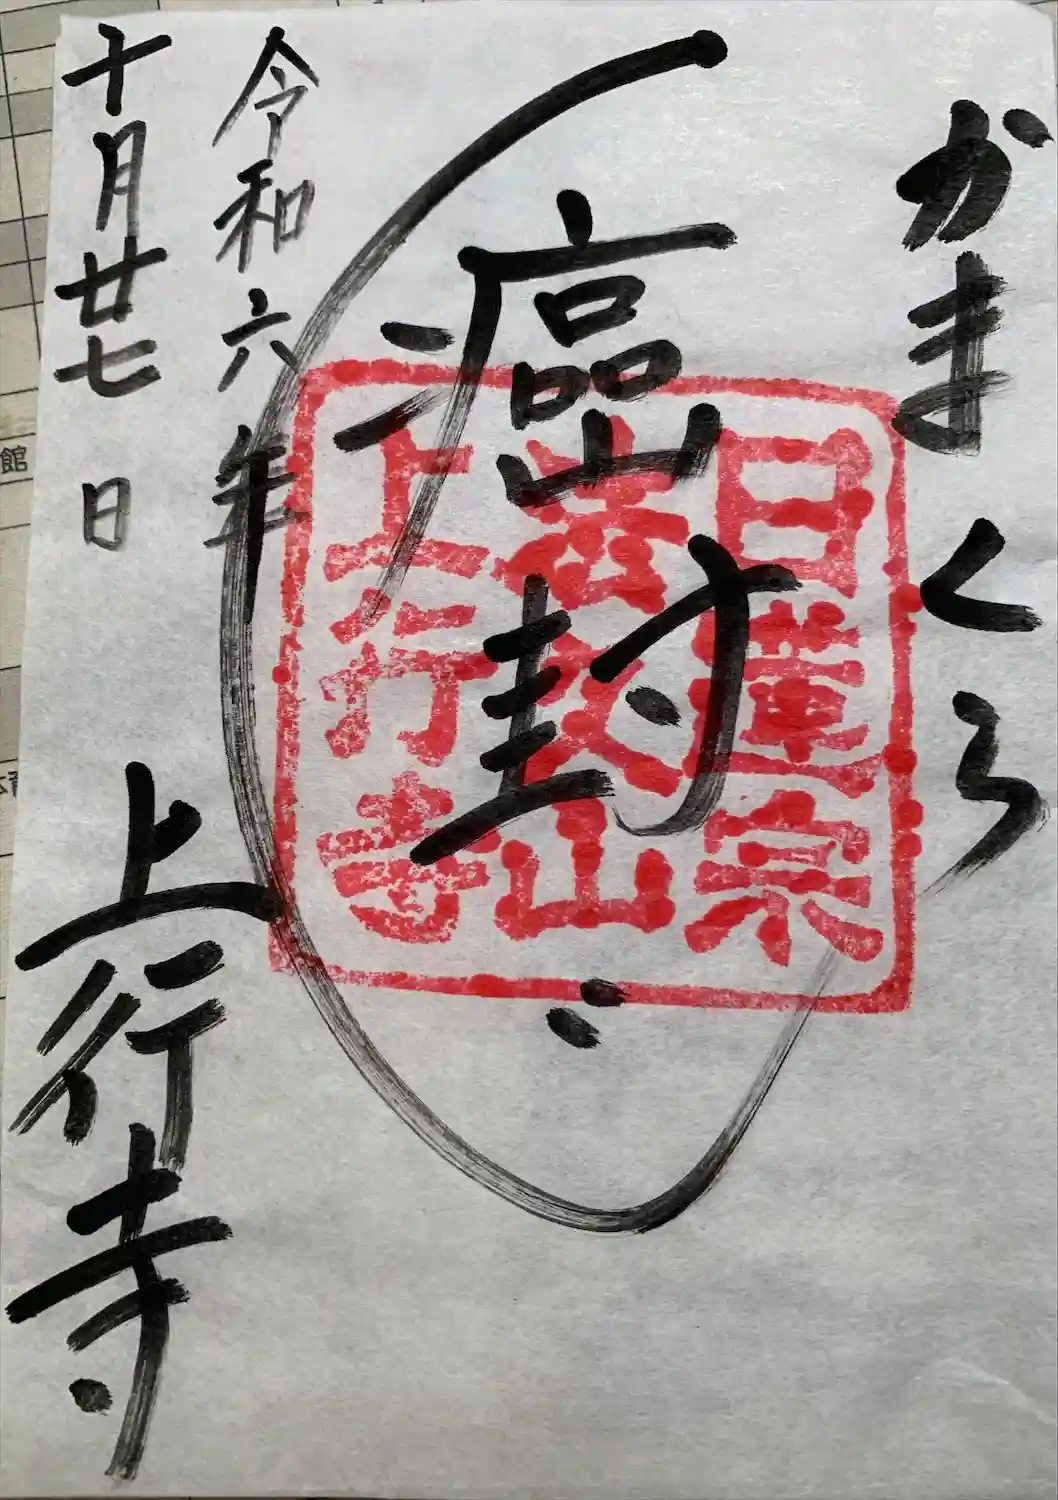 かまくら
癌封
日蓮宗
法久山
上行寺
令和六年
十月廿七日
上行寺
館